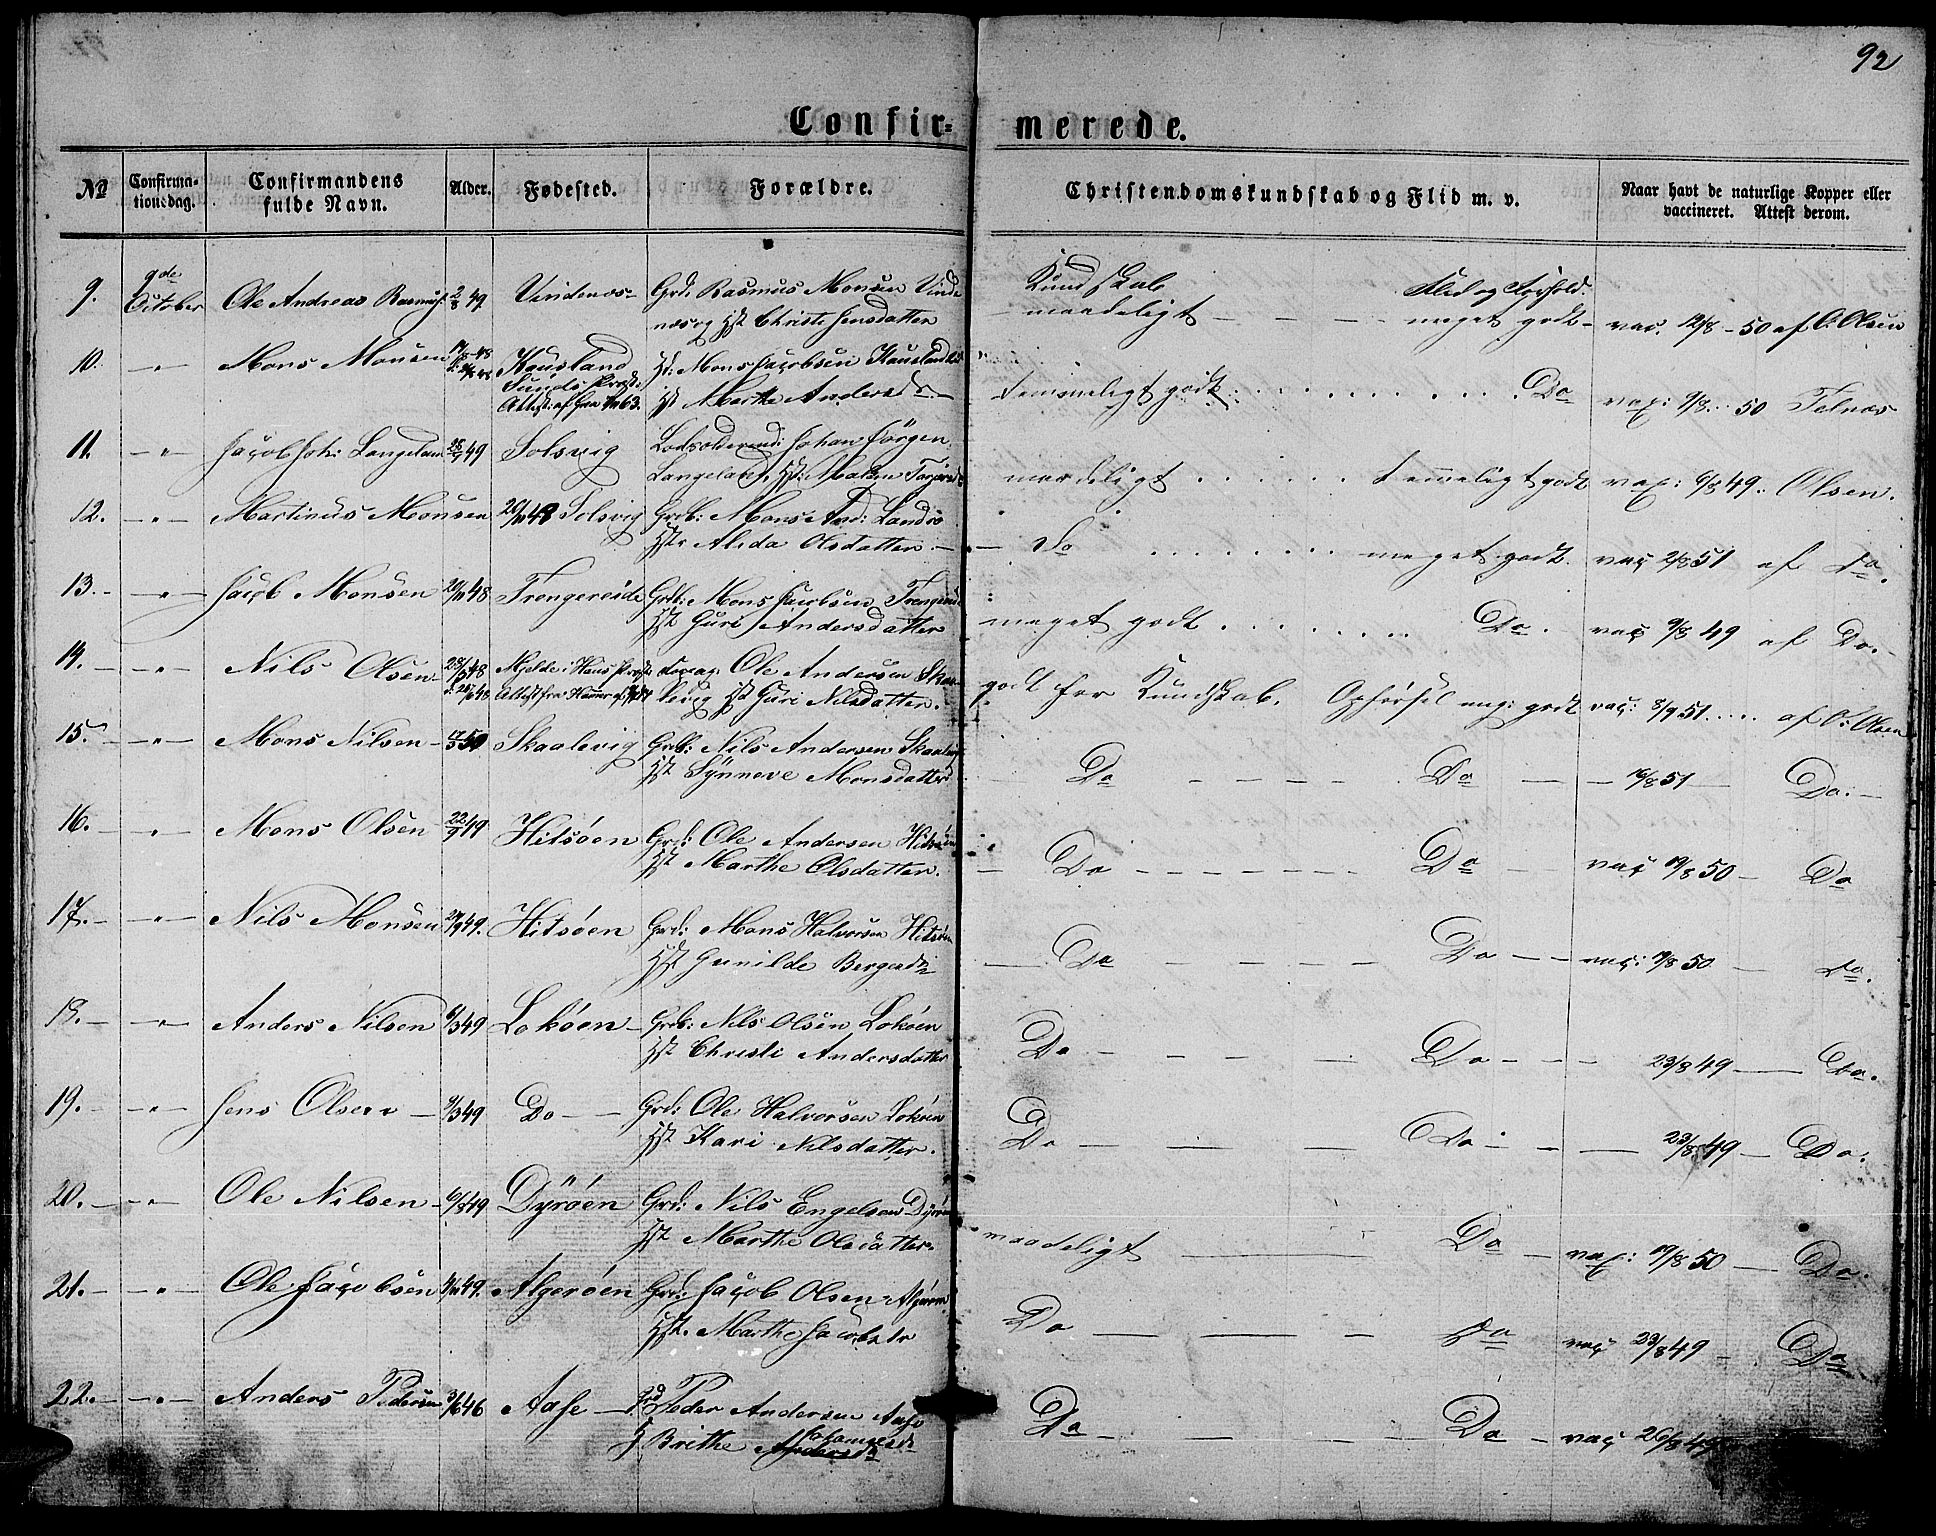 92
Confir- merede.
No Confirma- tionsdag. Confirmandens fulde Navn. Alder. Fødested. Forældre. Christendomskundskab og Flid m. v. Naar havt de naturlige Kopper eller vaccineret. Attest derom.
9. 9de October Ole Andreas Rasmus. 2/8 49 Vindenes Grd: Rasmus Monsen Vinde Kundskab Flid og Forhold.
nes og Hst Christi Jensdatter maadeligt meget godt vac. 12/8 - 50 af O: Olsen
10. - " - Mons Monsen Hausland Hd: Mons Jacobsen Hausland
Sunds Præst:
Attest: af fra 63. Hst Marthe Andersd. temmeligt godt Do vax: 9/8 50 Telnes
11. - " - Jacob Joh: Langeland 49 Solsvig Johan Jörgen
Langeland, Hst: Malen maadeligt temeligt godt vax: 9/8 49. Olsen.
12. - " - Martinus Monsen 20/11 48 Solsvig Grdb: Mons And: Landro
Hst: Alida Olsdatter - Do meget godt. vac 2/8 51 af Do.
13. - " - Jacob Monsen 20/11 48 Trengereide Grdb: Mons Jacobsen
Hst Guri Andersdatter meget godt Do. vac 9/8 49 af Do.
14. - " - Nils Olsen 48 Mjelde i Haus Ole Andersen Skaa
Attest fra Hammer levig Hst Guri Nilsdatter. godt for Kundskab. Opförsel meg: godt vac: 8/9 51 af O: Olsen
15. - " - Mons Nilsen 50 Skaalevig Grdb: Nils Andersen Skaalevig
Hst Synneve Monsdatter Do Do 16/8 51 Do.
16. - " - Mons Olsen 22/9 49 Hitsöen Grd: Ole Andersen Hitsöen
Hst Marthe Olsdatter. Do Do vac 19/8 50 Do
17. - " - Nils Monsen 49. Hitsöen Grd: Mons Halvorsen Hitsöen
Hst Gunilde Bergesd Do Do vac: 19/8 50 Do.
18. - " - Anders Nilsen 6/3 49 Loköen Grdb: Nils Olsen Loköen
Hst Christi Andersdatter Do Do 23/8 49 Do.
19. - " - Jens Olsen 9/3 49 Do Grd: Ole Halvorsen Loköen
Hst Kari Nilsdatter. Do Do 23/8 49 Do.
20. - " - Ole Nilsen 49 Dyröen Grd: Nils Engelsen Dyröen
Hst Marthe Olsdatter. maadeligt Do vax: 19/8 50 Do.
21. - " - Ole Jacobsen 49. Algeröen Grd: Jacob Olsen Algeröen
Hst. Marthe Jacobsdr Do Do vac 23/8 49 Do
22. - " - Anders Pedersen 46 Aase Grd Peder Andersen Aase
H Brithe Andersd Johannesd Do Do vac 26/8 49